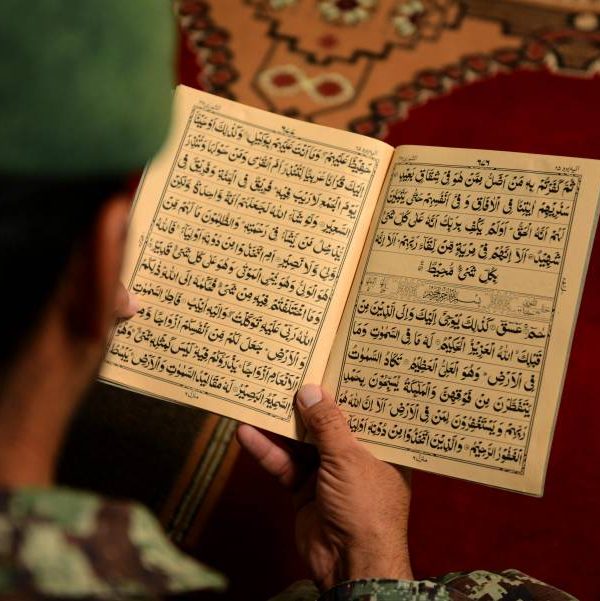 ٦٧٦
ثُمَّ كَفَرْتُمْ بِهٖ مَنْ اَضَلُّ مِمَّنْ هُوَ فِیْ شِقَاقٍۭ بَعِیْدٍ
سَنُرِیْهِمْ اٰیٰتِنَا فِی الْاٰفَاقِ وَ فِیْۤ اَنْفُسِهِمْ حَتّٰی یَتَبَیَّنَ
لَهُمْ اَنَّهُ الْحَقُّ ؕ اَوَلَمْ یَكْفِ بِرَبِّكَ اَنَّهٗ عَلٰی كُلِّ شَیْءٍ
شَهِیْدٌ اَلَاۤ اِنَّهُمْ فِیْ مِرْیَةٍ مِّنْ لِّقَآءِ رَبِّهِمْ ؕ اَلَاۤ اِنَّهٗ
بِكُلِّ شَیْءٍ مُّحِیْطٌ
بِسْمِ اللّٰهِ الرَّحْمٰنِ الرَّحِیْمِ
حٰمٓ عٓسٓقٓ كَذٰلِكَ یُوْحِیْۤ اِلَیْكَ وَاِلَی الَّذِیْنَ مِنْ
قَبْلِكَ اللّٰهُ الْعَزِیْزُ الْحَكِیْمُ لَهٗ مَا فِی السَّمٰوٰتِ وَمَا
فِی الْاَرْضِ ؕ وَهُوَ الْعَلِیُّ الْعَظِیْمُ تَكَادُ السَّمٰوٰتُ
یَتَفَطَّرْنَ مِنْ فَوْقِهِنَّ وَالْمَلٰٓئِكَةُ یُسَبِّحُوْنَ بِحَمْدِ
رَبِّهِمْ وَیَسْتَغْفِرُوْنَ لِمَنْ فِی الْاَرْضِ ؕ اَلَاۤ اِنَّ اللّٰهَ هُوَ
الْغَفُوْرُ الرَّحِیْمُ وَالَّذِیْنَ اتَّخَذُوْا مِنْ دُوْنِهٖۤ اَوْلِیَآءَ
٦٧٧
حَفِیْظٌ عَلَیْهِمْ وَمَاۤ اَنْتَ عَلَیْهِمْ بِوَكِیْلٍ وَكَذٰلِكَ اَوْحَیْنَاۤ
اِلَیْكَ قُرْاٰنًا عَرَبِیًّا لِّتُنْذِرَ اُمَّ الْقُرٰی وَمَنْ حَوْلَهَا وَتُنْذِرَ
یَوْمَ الْجَمْعِ لَا رَیْبَ فِیْهِ ؕ فَرِیْقٌ فِی الْجَنَّةِ وَفَرِیْقٌ فِی
السَّعِیْرِ وَلَوْ شَآءَ اللّٰهُ لَجَعَلَهُمْ اُمَّةً وَّاحِدَةً وَّلٰكِنْ
یُّدْخِلُ مَنْ یَّشَآءُ فِیْ رَحْمَتِهٖ ؕ وَالظّٰلِمُوْنَ مَا لَهُمْ مِّنْ
وَّلِیٍّ وَّلَا نَصِیْرٍ اَمِ اتَّخَذُوْا مِنْ دُوْنِهٖۤ اَوْلِیَآءَ ۚ فَاللّٰهُ
هُوَ الْوَلِیُّ وَهُوَ یُحْیِ الْمَوْتٰی وَهُوَ عَلٰی كُلِّ شَیْءٍ قَدِیْرٌ
وَمَا اخْتَلَفْتُمْ فِیْهِ مِنْ شَیْءٍ فَحُكْمُهٗۤ اِلَی اللّٰهِ ؕ ذٰلِكُمُ
اللّٰهُ رَبِّیْ عَلَیْهِ تَوَكَّلْتُ وَاِلَیْهِ اُنِیْبُ فَاطِرُ السَّمٰوٰتِ
وَالْاَرْضِ ؕ جَعَلَ لَكُمْ مِّنْ اَنْفُسِكُمْ اَزْوَاجًا وَّمِنَ
الْاَنْعَامِ اَزْوَاجًا ۚ یَذْرَؤُكُمْ فِیْهِ ؕ لَیْسَ كَمِثْلِهٖ شَیْءٌ ۚ وَهُوَ
السَّمِیْعُ الْبَصِیْرُ لَهٗ مَقَالِیْدُ السَّمٰوٰتِ وَالْاَرْضِ ۚ یَبْسُطُ